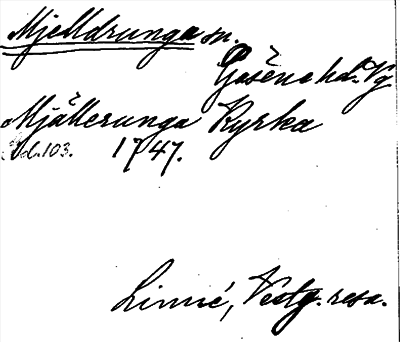 Mjelldrunga sn.
Gäsene hd. Vg
Mjällerunga Kyrka
sid. 103. 1747.
Linné, Vestg. resa.